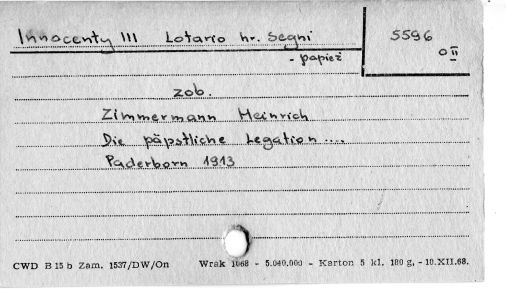 Innocenty III Lotario hr. Segni 5596
- papież O II
zob.
Zimmermann Heinrich
Die päpstliche Legation ....
Paderborn 1913
CWD B 15 b Zam. 1537/DW/On Wrak 1068 - 5.040.000 - Karton 5 kl. 180 g. - 10.XII.68.